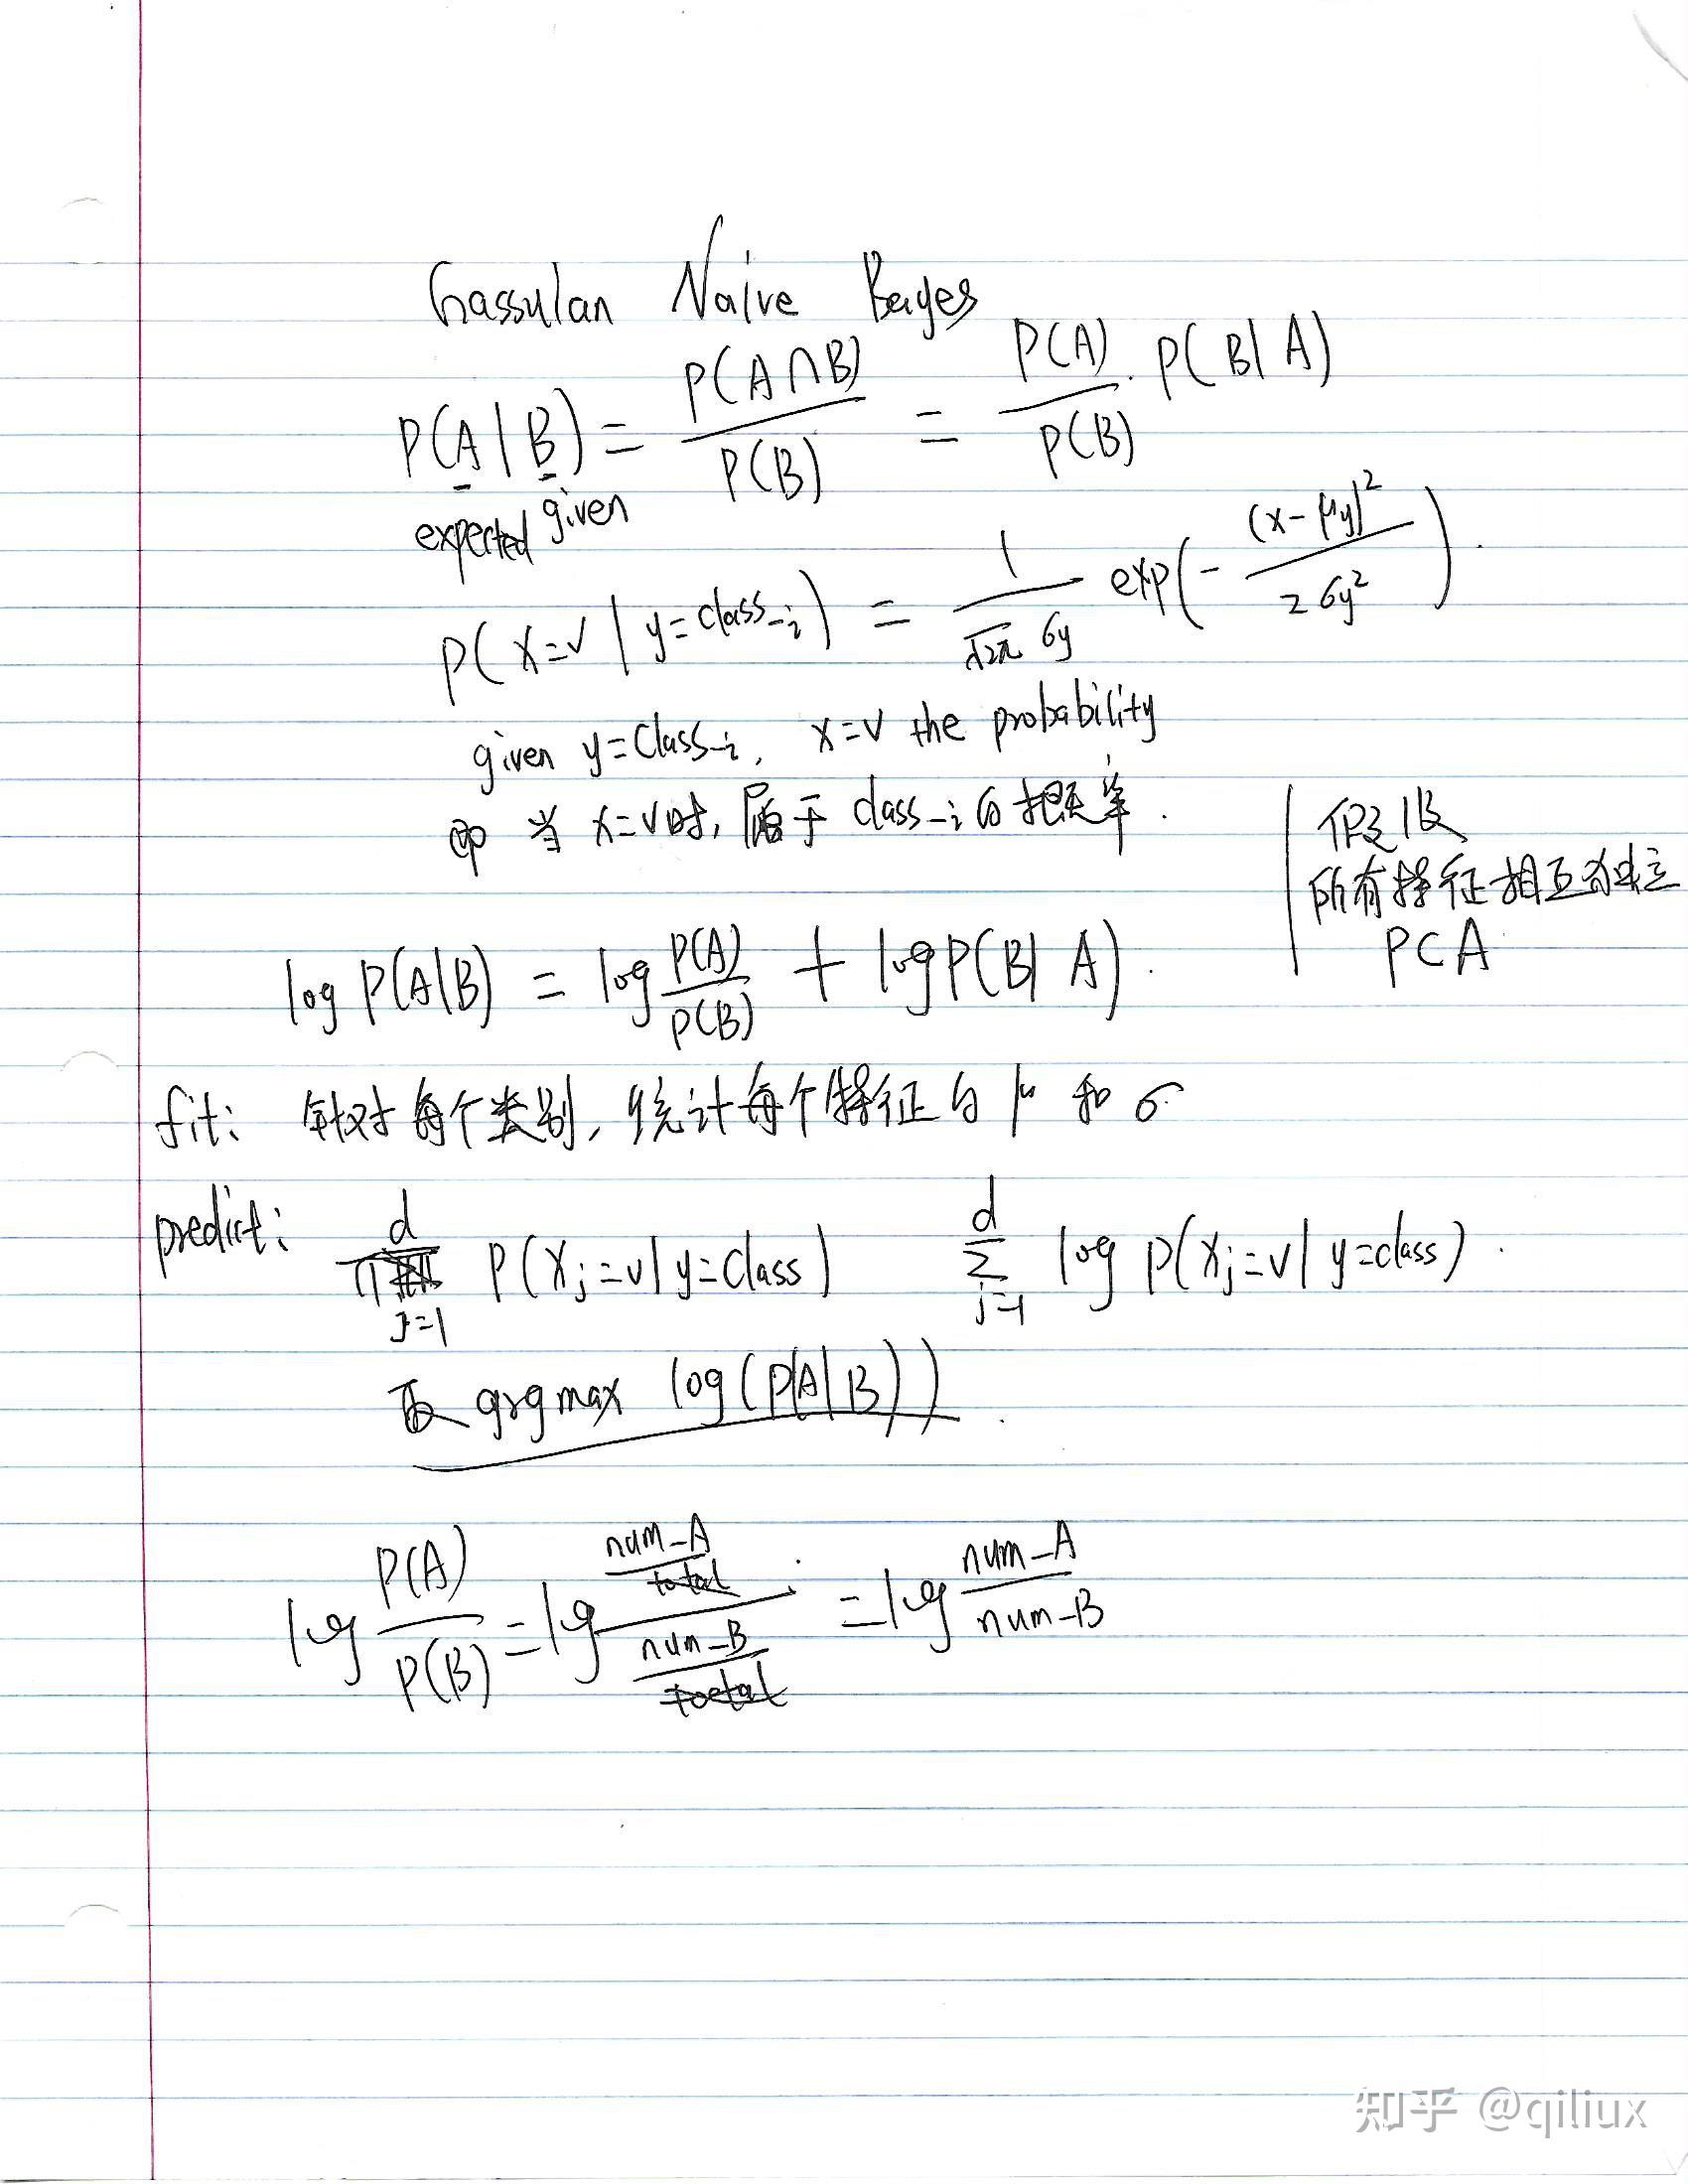 Gassuian Naive Bayes
P(A|B) = P(A∩B) / P(B) = P(A) / P(B) · P(B|A)
expected given
P(x=v | y=class_i) = 1 / √2π σy exp(- (x-μy)² / 2σy²).
given y=Class_i, x=v the probability
即 当 x=v时, 属于 class_i 的 概率.
假设
所有特征相互独立
PCA
log P(A|B) = log P(A) / P(B) + log P(B|A).
fit: 针对每个类别, 统计每个特征的 μ 和 σ
predict: ∏ d j=1 P(Xj=v | y=Class) ∑ d j=1 log P(Xj=v | y=class).
取 argmax log(P(A|B)).
log P(A) / P(B) = log num_A / total / num_B / total = log num_A / num_B
知乎 @qiliux